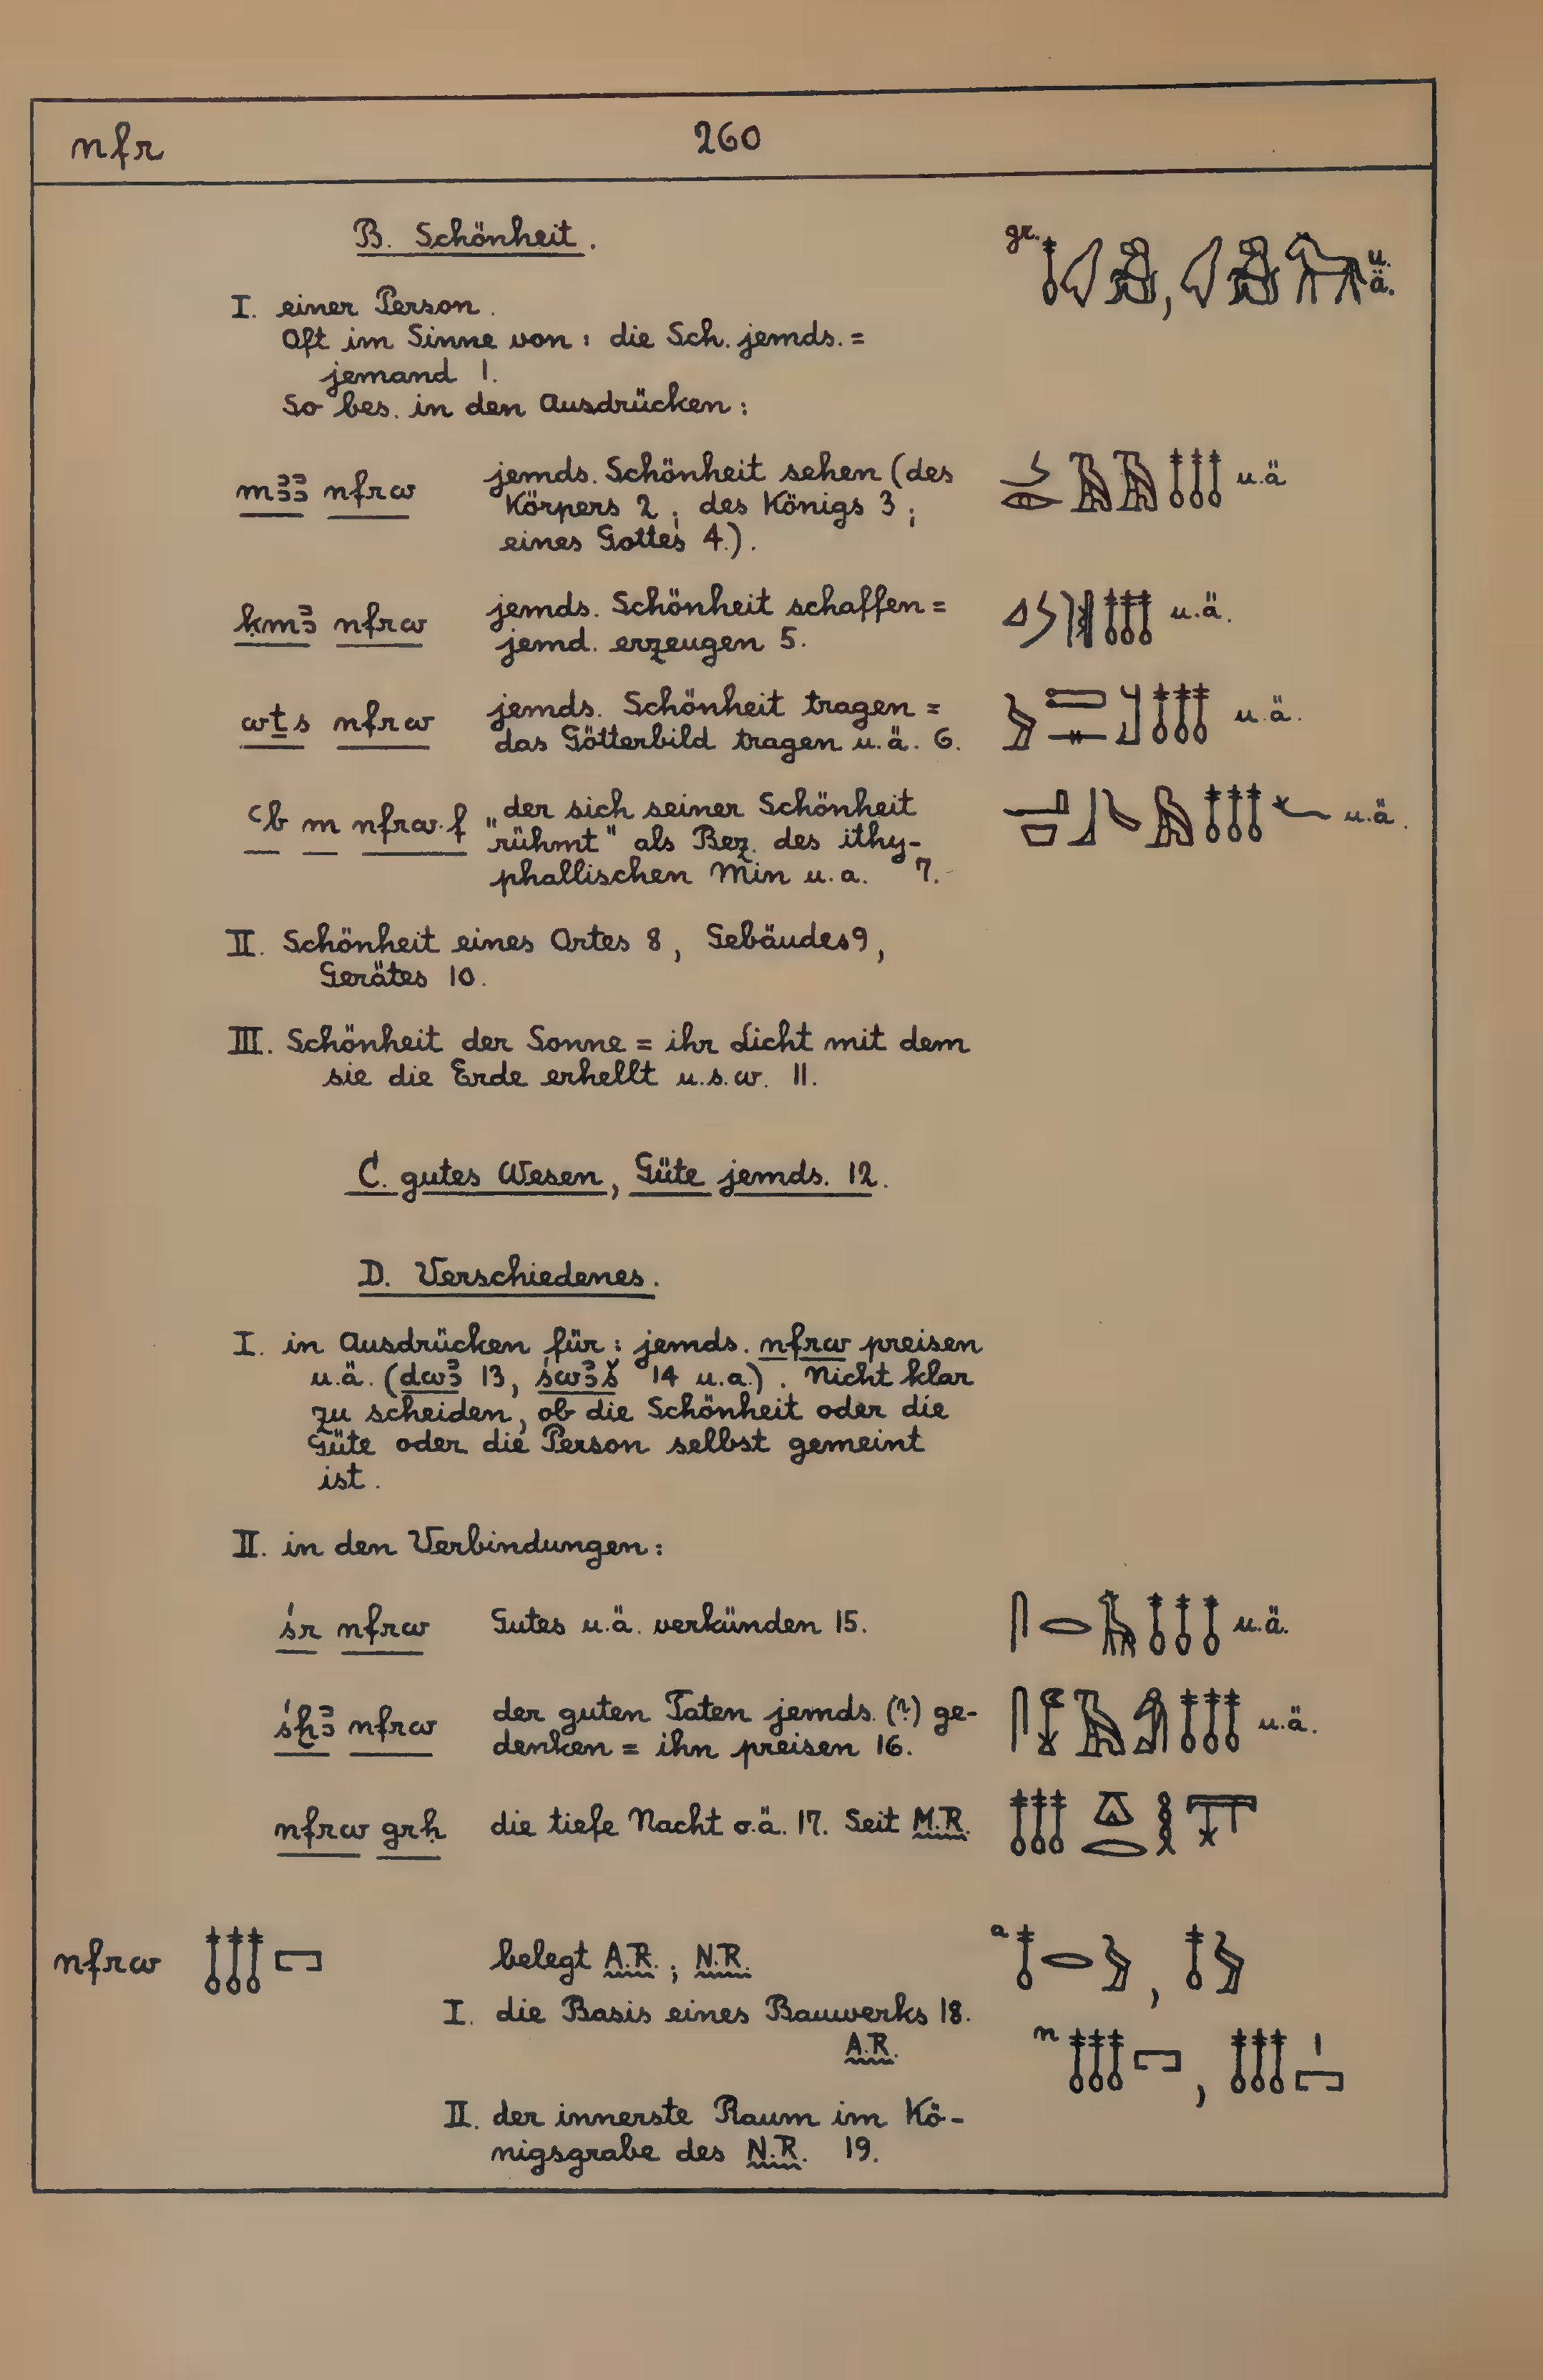 nfr 260
B. Schönheit.
gr. u.
ä.
I. einer Person.
Oft im Sinne von: die Sch. jemds. =
jemand 1.
So bes. in den Ausdrücken:
mꜣꜣ nfrw jemds. Schönheit sehen (des u.ä
Körpers 2; des Königs 3;
eines Gottes 4.).
ḳmꜣ nfrw jemds. Schönheit schaffen = u.ä.
jemd. erzeugen 5.
wṯs nfrw jemds. Schönheit tragen = u.ä.
das Götterbild tragen u.ä. 6.
ꜥb m nfrw.f „der sich seiner Schönheit u.ä.
rühmt" als Bez. des ithy-
phallischen Min u.a. 7.
II. Schönheit eines Ortes 8, Gebäudes 9,
Gerätes 10.
III. Schönheit der Sonne = ihr Licht mit dem
sie die Erde erhellt u.s.w. 11.
C. gutes Wesen, Güte jemds. 12.
D. Verschiedenes.
I. in Ausdrücken für: jemds. nfrw preisen
u.ä. (dwꜣ 13, św ꜣš 14 u.a.). Nicht klar
zu scheiden, ob die Schönheit oder die
Güte oder die Person selbst gemeint
ist.
II. in den Verbindungen:
śr nfrw Gutes u.ä. verkünden 15. u.ä.
śḫꜣ nfrw der guten Taten jemds. (?) ge- u.ä.
denken = ihn preisen 16.
nfrw grḥ die tiefe Nacht o.ä. 17. Seit M.R.
nfrw belegt A.R.; N.R. a
I. die Basis eines Bauwerks 18.
A.R. n
II. der innerste Raum im Kö-
nigsgrabe des N.R. 19.